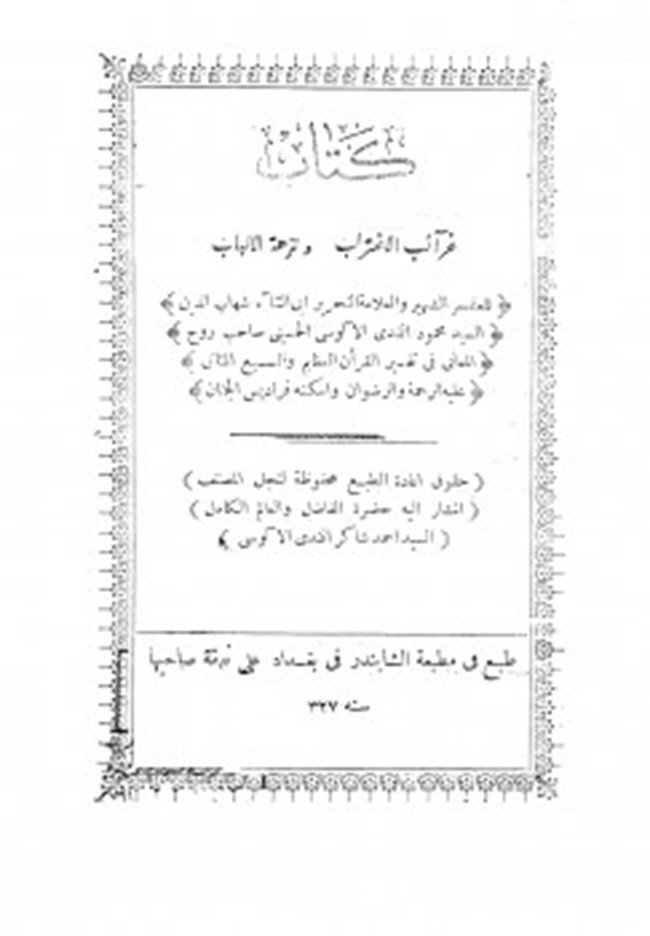 كتاب
غرآئب الاغتراب ونزهة الالباب
﴿ للمفسر الشهير والعلامة النحرير ابى الثنآء شهاب الدين ﴾
﴿ السيد محمود افندى الآلوسى الحسينى صاحب روح ﴾
﴿ المعانى فى تفسير القرآن العظيم والسبع المثانى ﴾
﴿ عليه الرحمة والرضوان واسكنه فراديس الجنان ﴾
( حقوق اعادة الطبع محفوظة لنجل المصنف )
( المشار اليه حضرة الفاضل والعالم الكامل )
( السيد احمد شاكر افندى الآلوسى )
طبع فى مطبعة الشابندر فى بغداد على نفقة صاحبها
سنه ٣٢٧